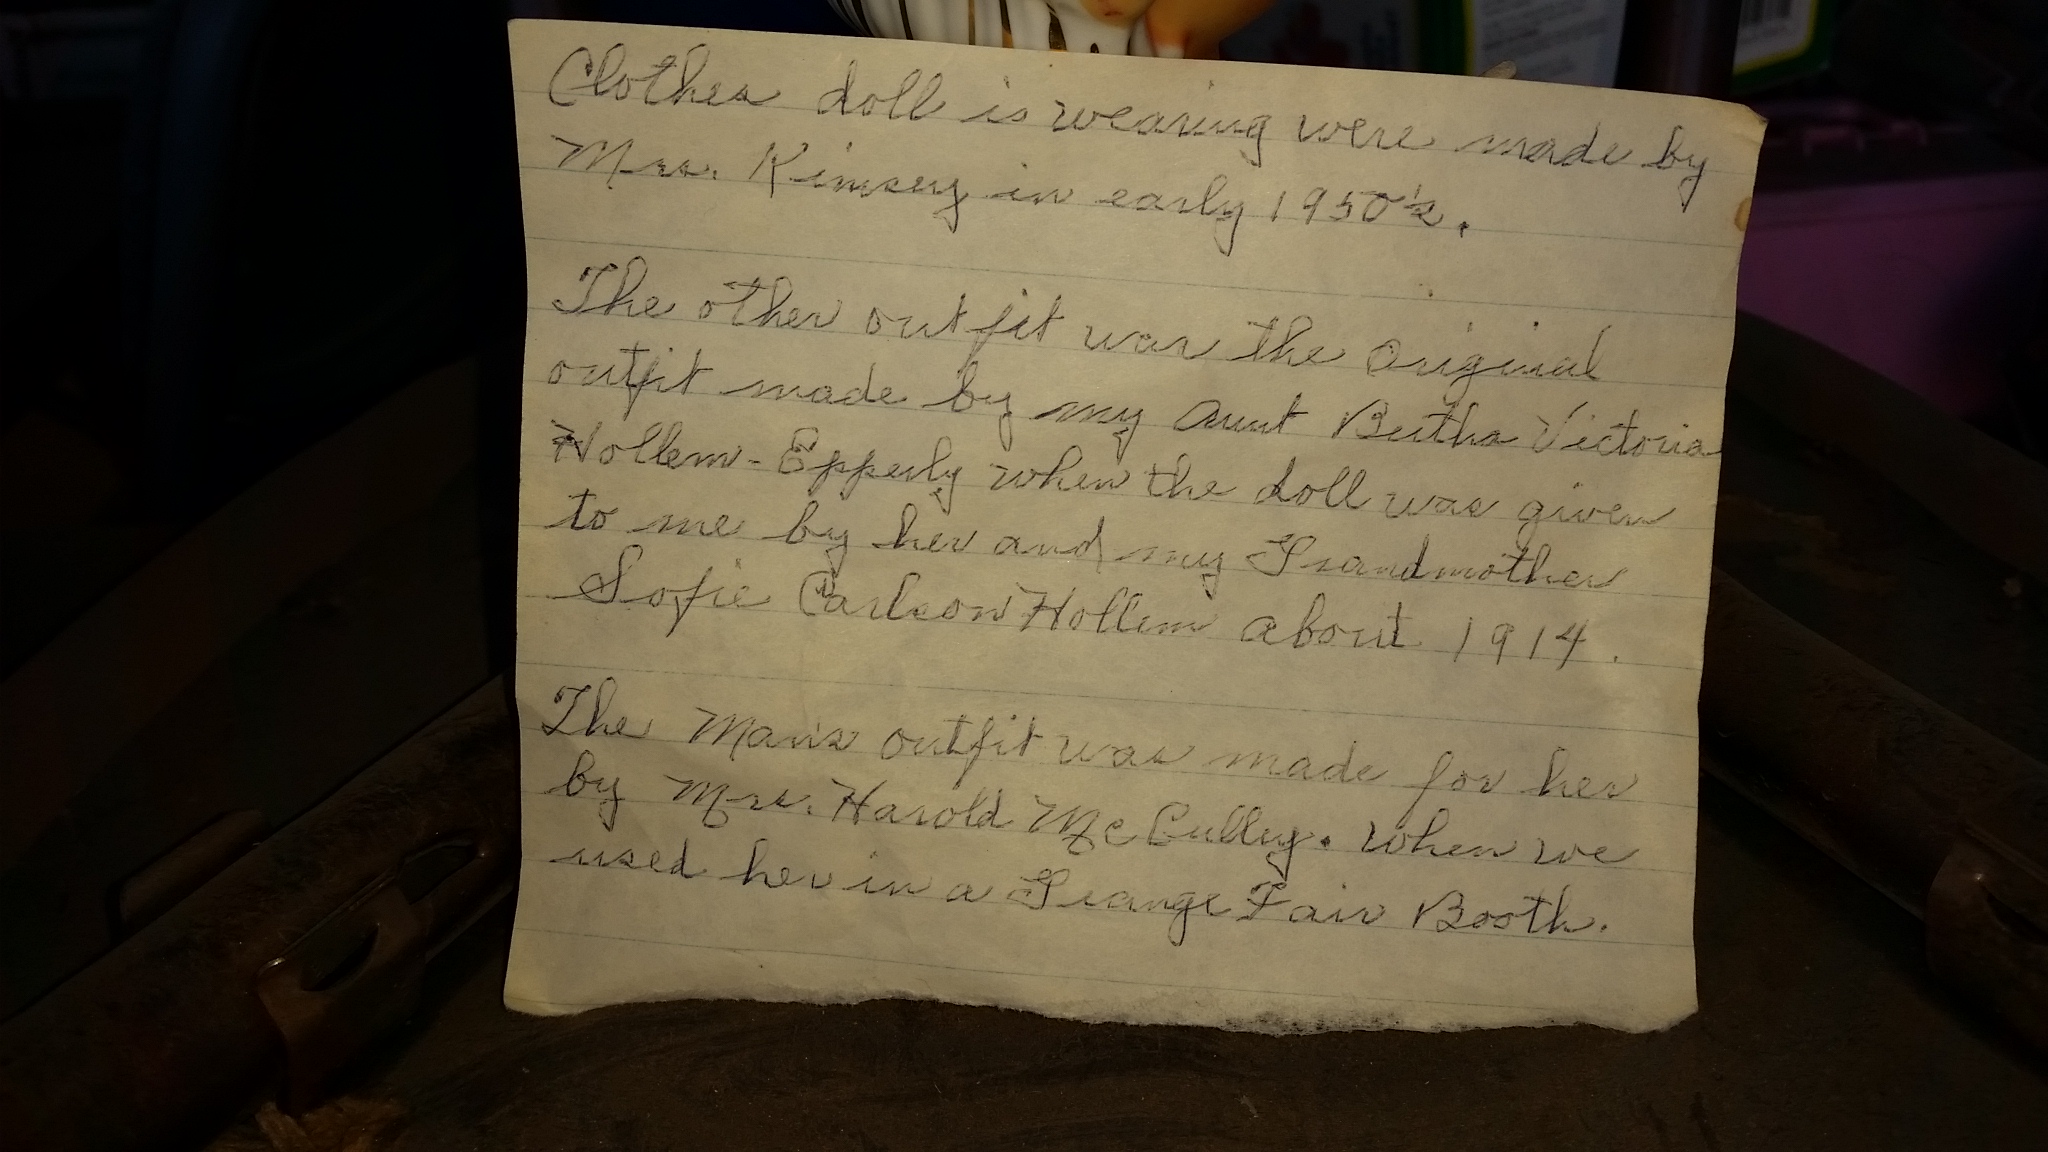 Clothes doll is wearing were made by
Mrs. Kimsey in early 1950's.
The other outfit was the original
outfit made by my Aunt Bertha Victoria
Hollem-Epperly when the doll was given
to me by her and my Grandmother
Sofie Carlson Hollem about 1914.
The Man's outfit was made for her
by Mrs. Harold McCulley. When we
used her in a Grange Fair Booth.